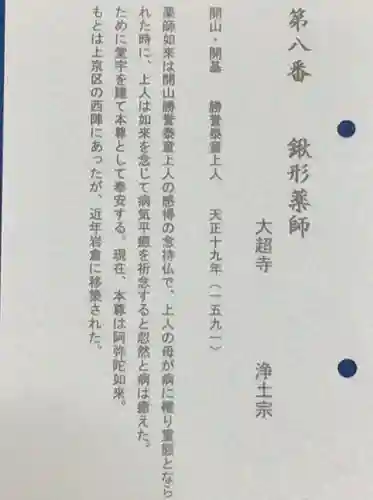 第八番 鍬形薬師
大超寺 浄土宗
開山・開基 勝誉泰童上人 天正十九年(一五九一)
薬師如来は開山勝誉泰童上人の感得の念持仏で、上人の母が病に罹り重態となら
れた時に、上人は如来を念じて病気平癒を祈念すると忽然と病は癒えた。
ために堂宇を建て本尊として奉安する。現在、本尊は阿弥陀如来。
もとは上京区の西陣にあったが、近年岩倉に移築された。